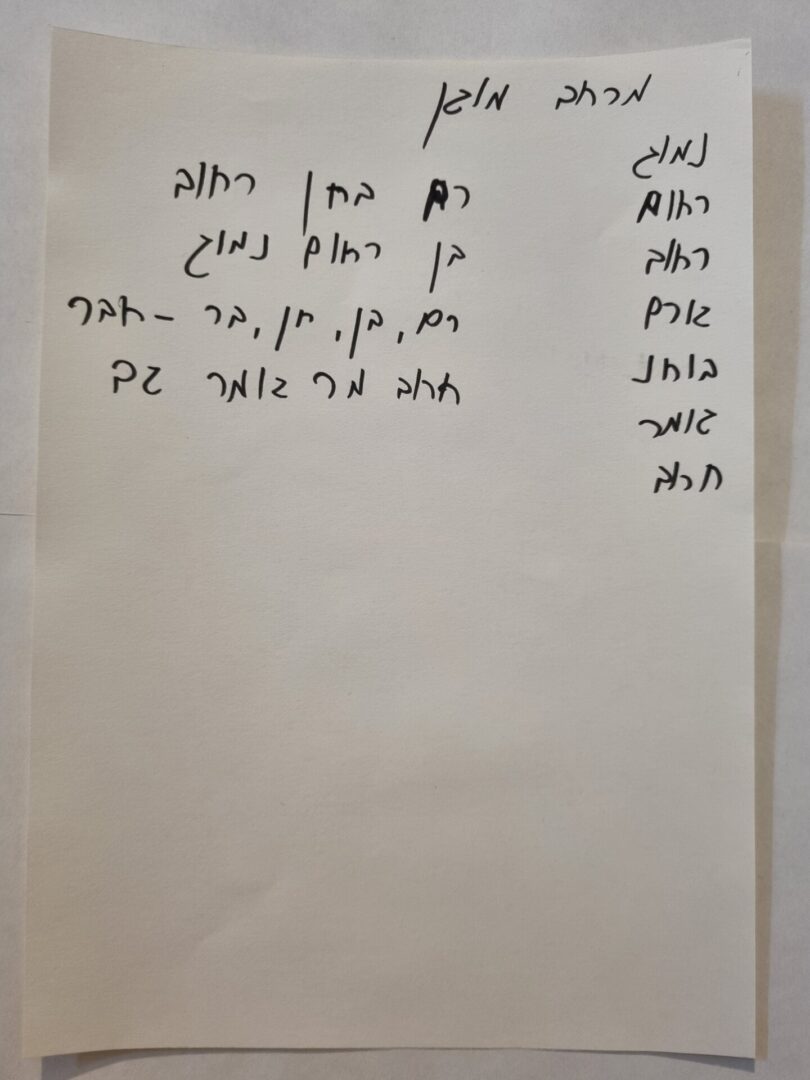 מרחב מוגן
נמוג
רחום
רחוב
גורם
בוחנ
גומר
חרוב
רם בחן רחוב
בן רחום נמוג
רם, בן, חן, בר - חבר
חרוב מר גומר גם